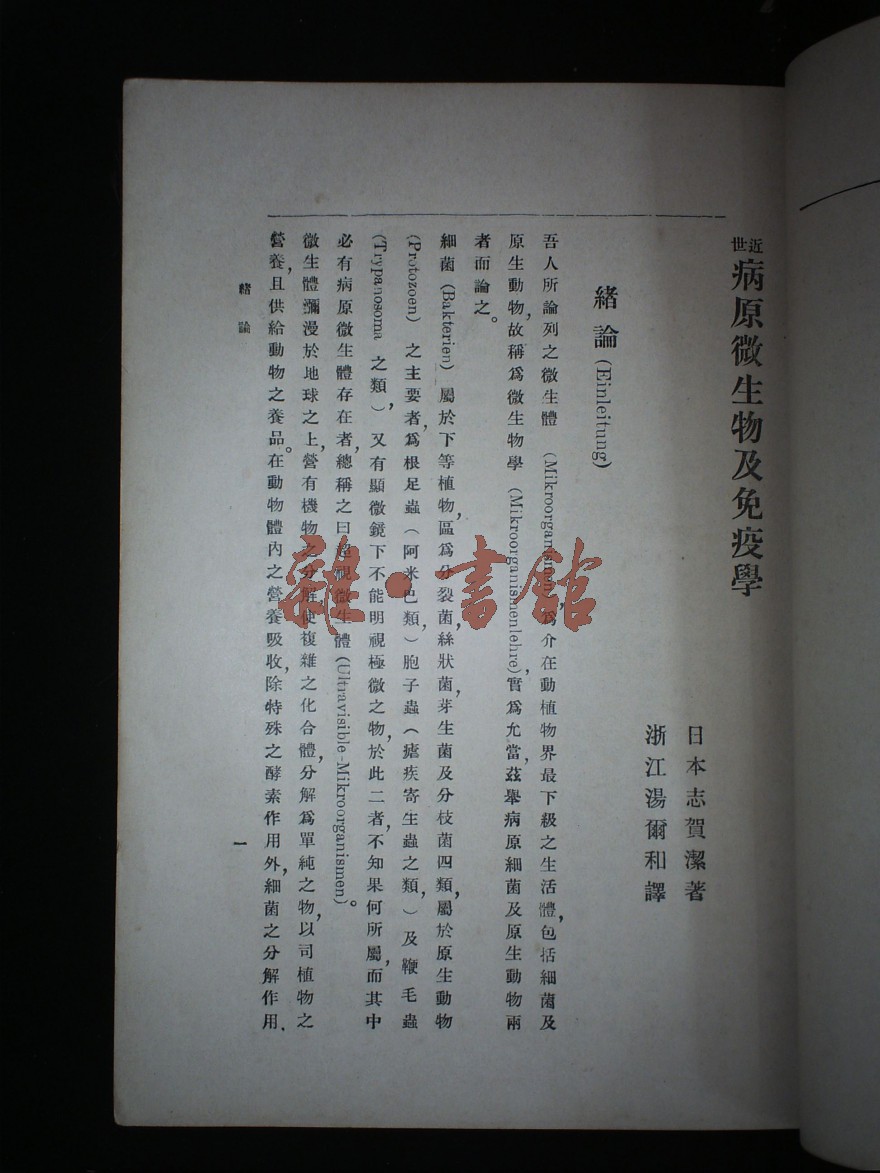 近世病原微生物及免疫學
日本志賀潔著
浙江湯爾和譯
緒論(Einleitung)
吾人所論列之微生體(Mikroorganismen)，爲介在動植物界最下級之生活體，包括細菌及
原生動物，故稱爲微生物學(Mikroorganismenlehre)實爲允當，茲舉病原細菌及原生動物兩
者而論之。
細菌(Bakterien)屬於下等植物，區爲分裂菌，絲狀菌，芽生菌及分枝菌四類，屬於原生動物
(Protozoen)之主要者，爲根足蟲(阿米巴類，)胞子蟲(瘧疾寄生蟲之類，)及鞭毛蟲
(Trypanosoma之類，)又有顯微鏡下不能明視極微之物，於此二者，不知果何所屬，而其中
必有病原微生體存在者，總稱之曰超視微生體(Ultravisible-Mikroorganismen)。
微生體瀰漫於地球之上，營有機物之分解，使複雜之化合體，分解爲單純之物，以司植物之
營養，且供給動物之養品。在動物體內之營養吸收，除特殊之酵素作用外，細菌之分解作用，
緒論
一
雜·書館